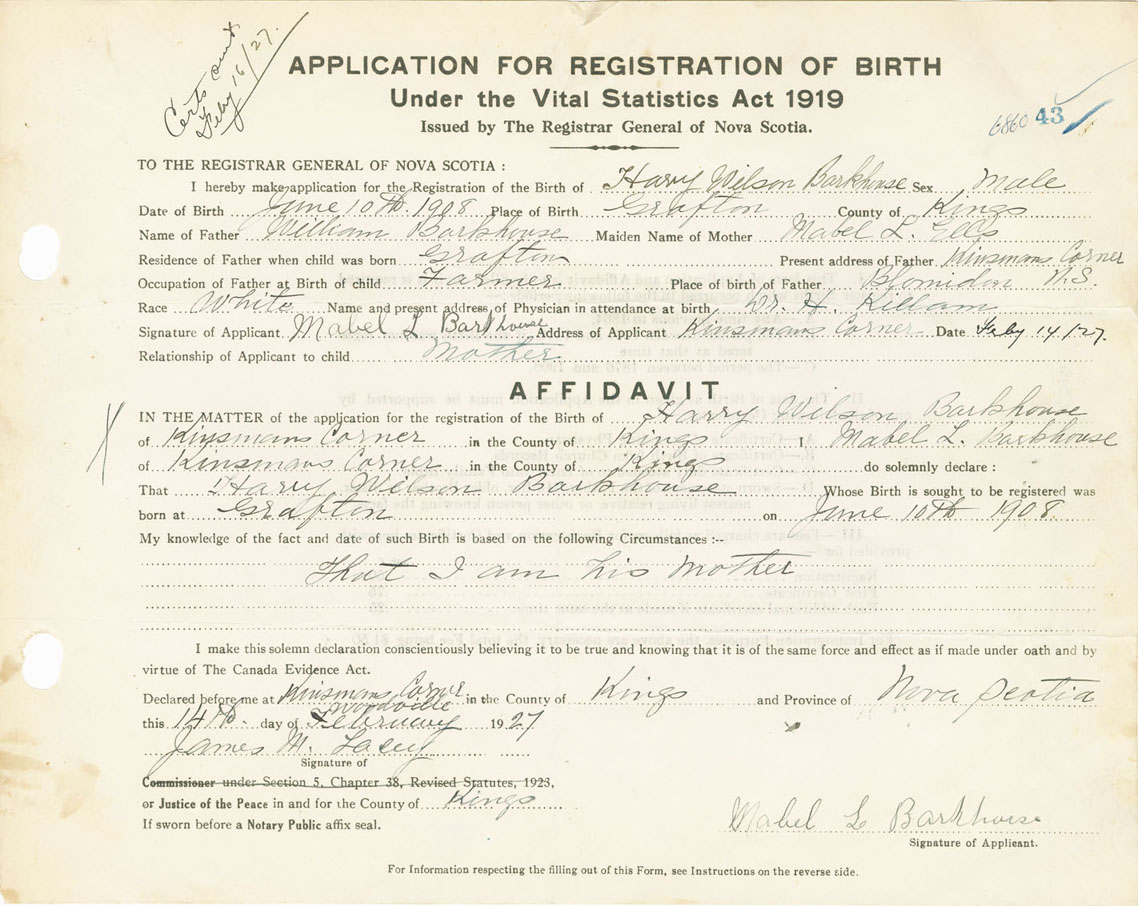 Certs sent
Feby 16/27.
APPLICATION FOR REGISTRATION OF BIRTH
Under the Vital Statistics Act 1919
Issued by The Registrar General of Nova Scotia.
6860 43
TO THE REGISTRAR GENERAL OF NOVA SCOTIA :
I hereby make application for the Registration of the Birth of Harry Wilson Barkhouse Sex Male
Date of Birth June 10th 1908 Place of Birth Grafton County of Kings
Name of Father William Barkhouse Maiden Name of Mother Mabel L. Ells
Residence of Father when child was born Grafton Present address of Father Kinsmans Corner
Occupation of Father at Birth of child Farmer Place of birth of Father Blomidon N.S.
Race White Name and present address of Physician in attendance at birth Dr. H. Killam
Signature of Applicant Mabel L Barkhouse Address of Applicant Kinsmans Corner Date Feby 14/27.
Relationship of Applicant to child Mother
AFFIDAVIT
IN THE MATTER of the application for the registration of the Birth of Harry Wilson Barkhouse
of Kinsmans Corner in the County of Kings I Mabel L. Barkhouse
of Kinsmans Corner in the County of Kings do solemnly declare :
That Harry Wilson Barkhouse Whose Birth is sought to be registered was
born at Grafton on June 10th 1908.
My knowledge of the fact and date of such Birth is based on the following Circumstances :--
That I am his Mother
I make this solemn declaration conscientiously believing it to be true and knowing that it is of the same force and effect as if made under oath and by
virtue of The Canada Evidence Act.
Declared before me at Kinsmans Corner in the County of Kings and Province of Nova Scotia
Woodville
this 14th. day of February 1927
James M. Lacey
Signature of
Commissioner under Section 5, Chapter 38, Revised Statutes, 1923,
or Justice of the Peace in and for the County of Kings
If sworn before a Notary Public affix seal.
Mabel L Barkhouse
Signature of Applicant.
For Information respecting the filling out of this Form, see Instructions on the reverse side.